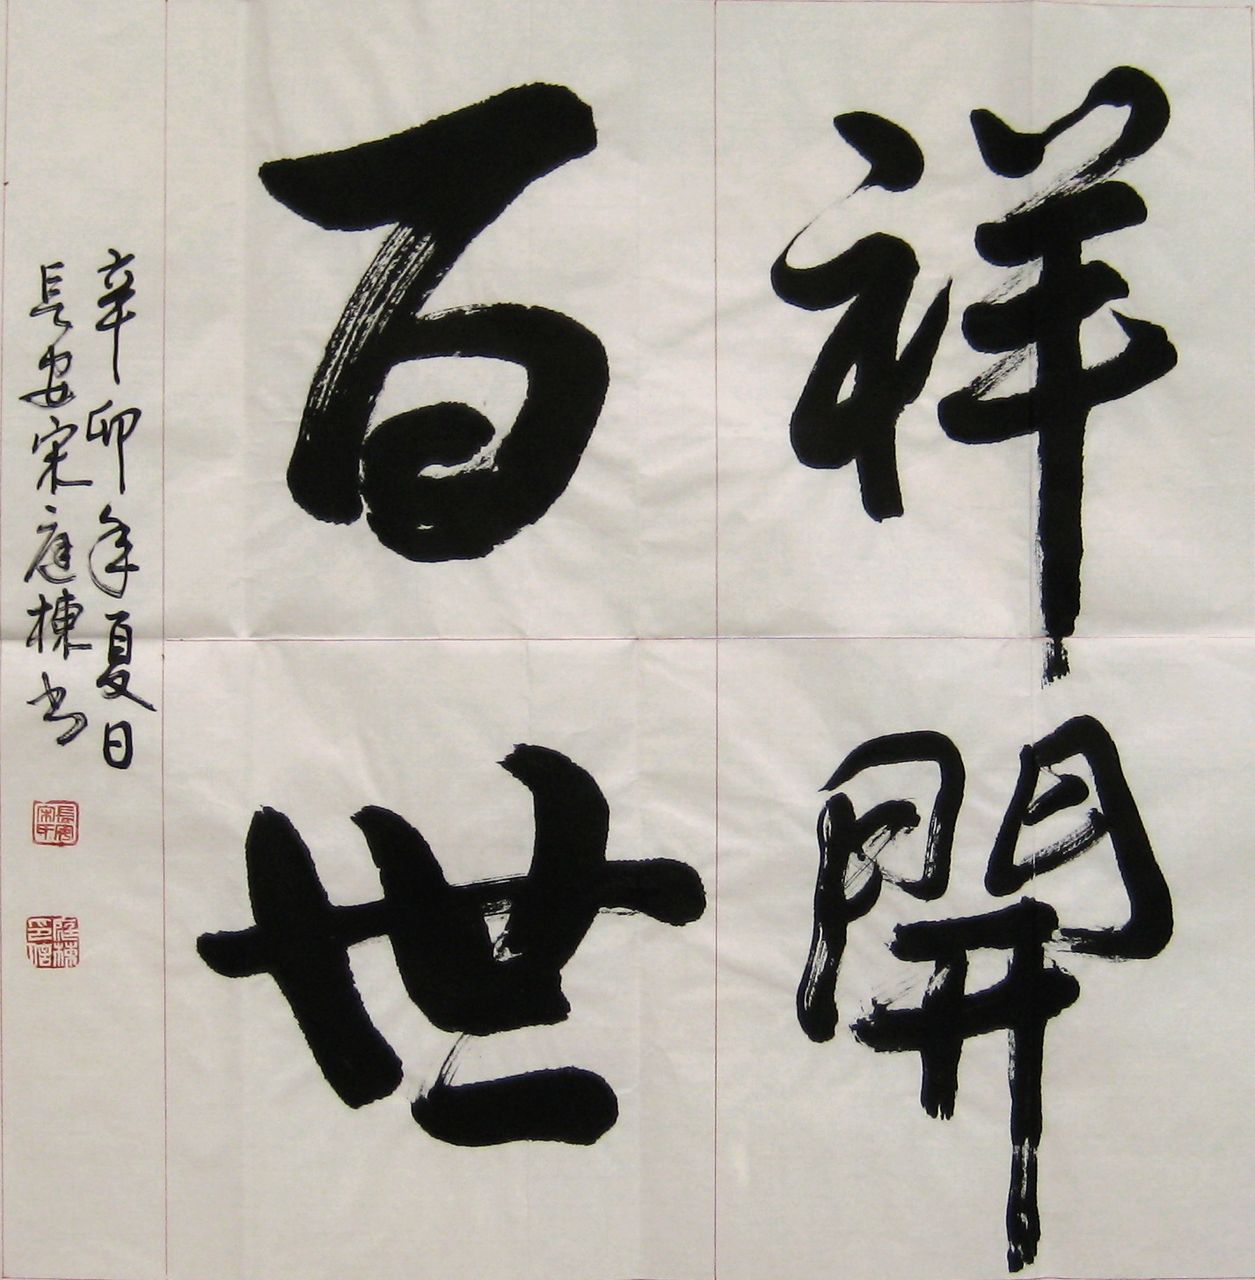 祥開
百世
辛卯年夏日
長安宋庭棟书